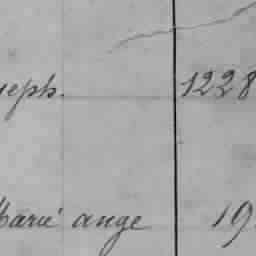 seph. 1228
Marie ange 19